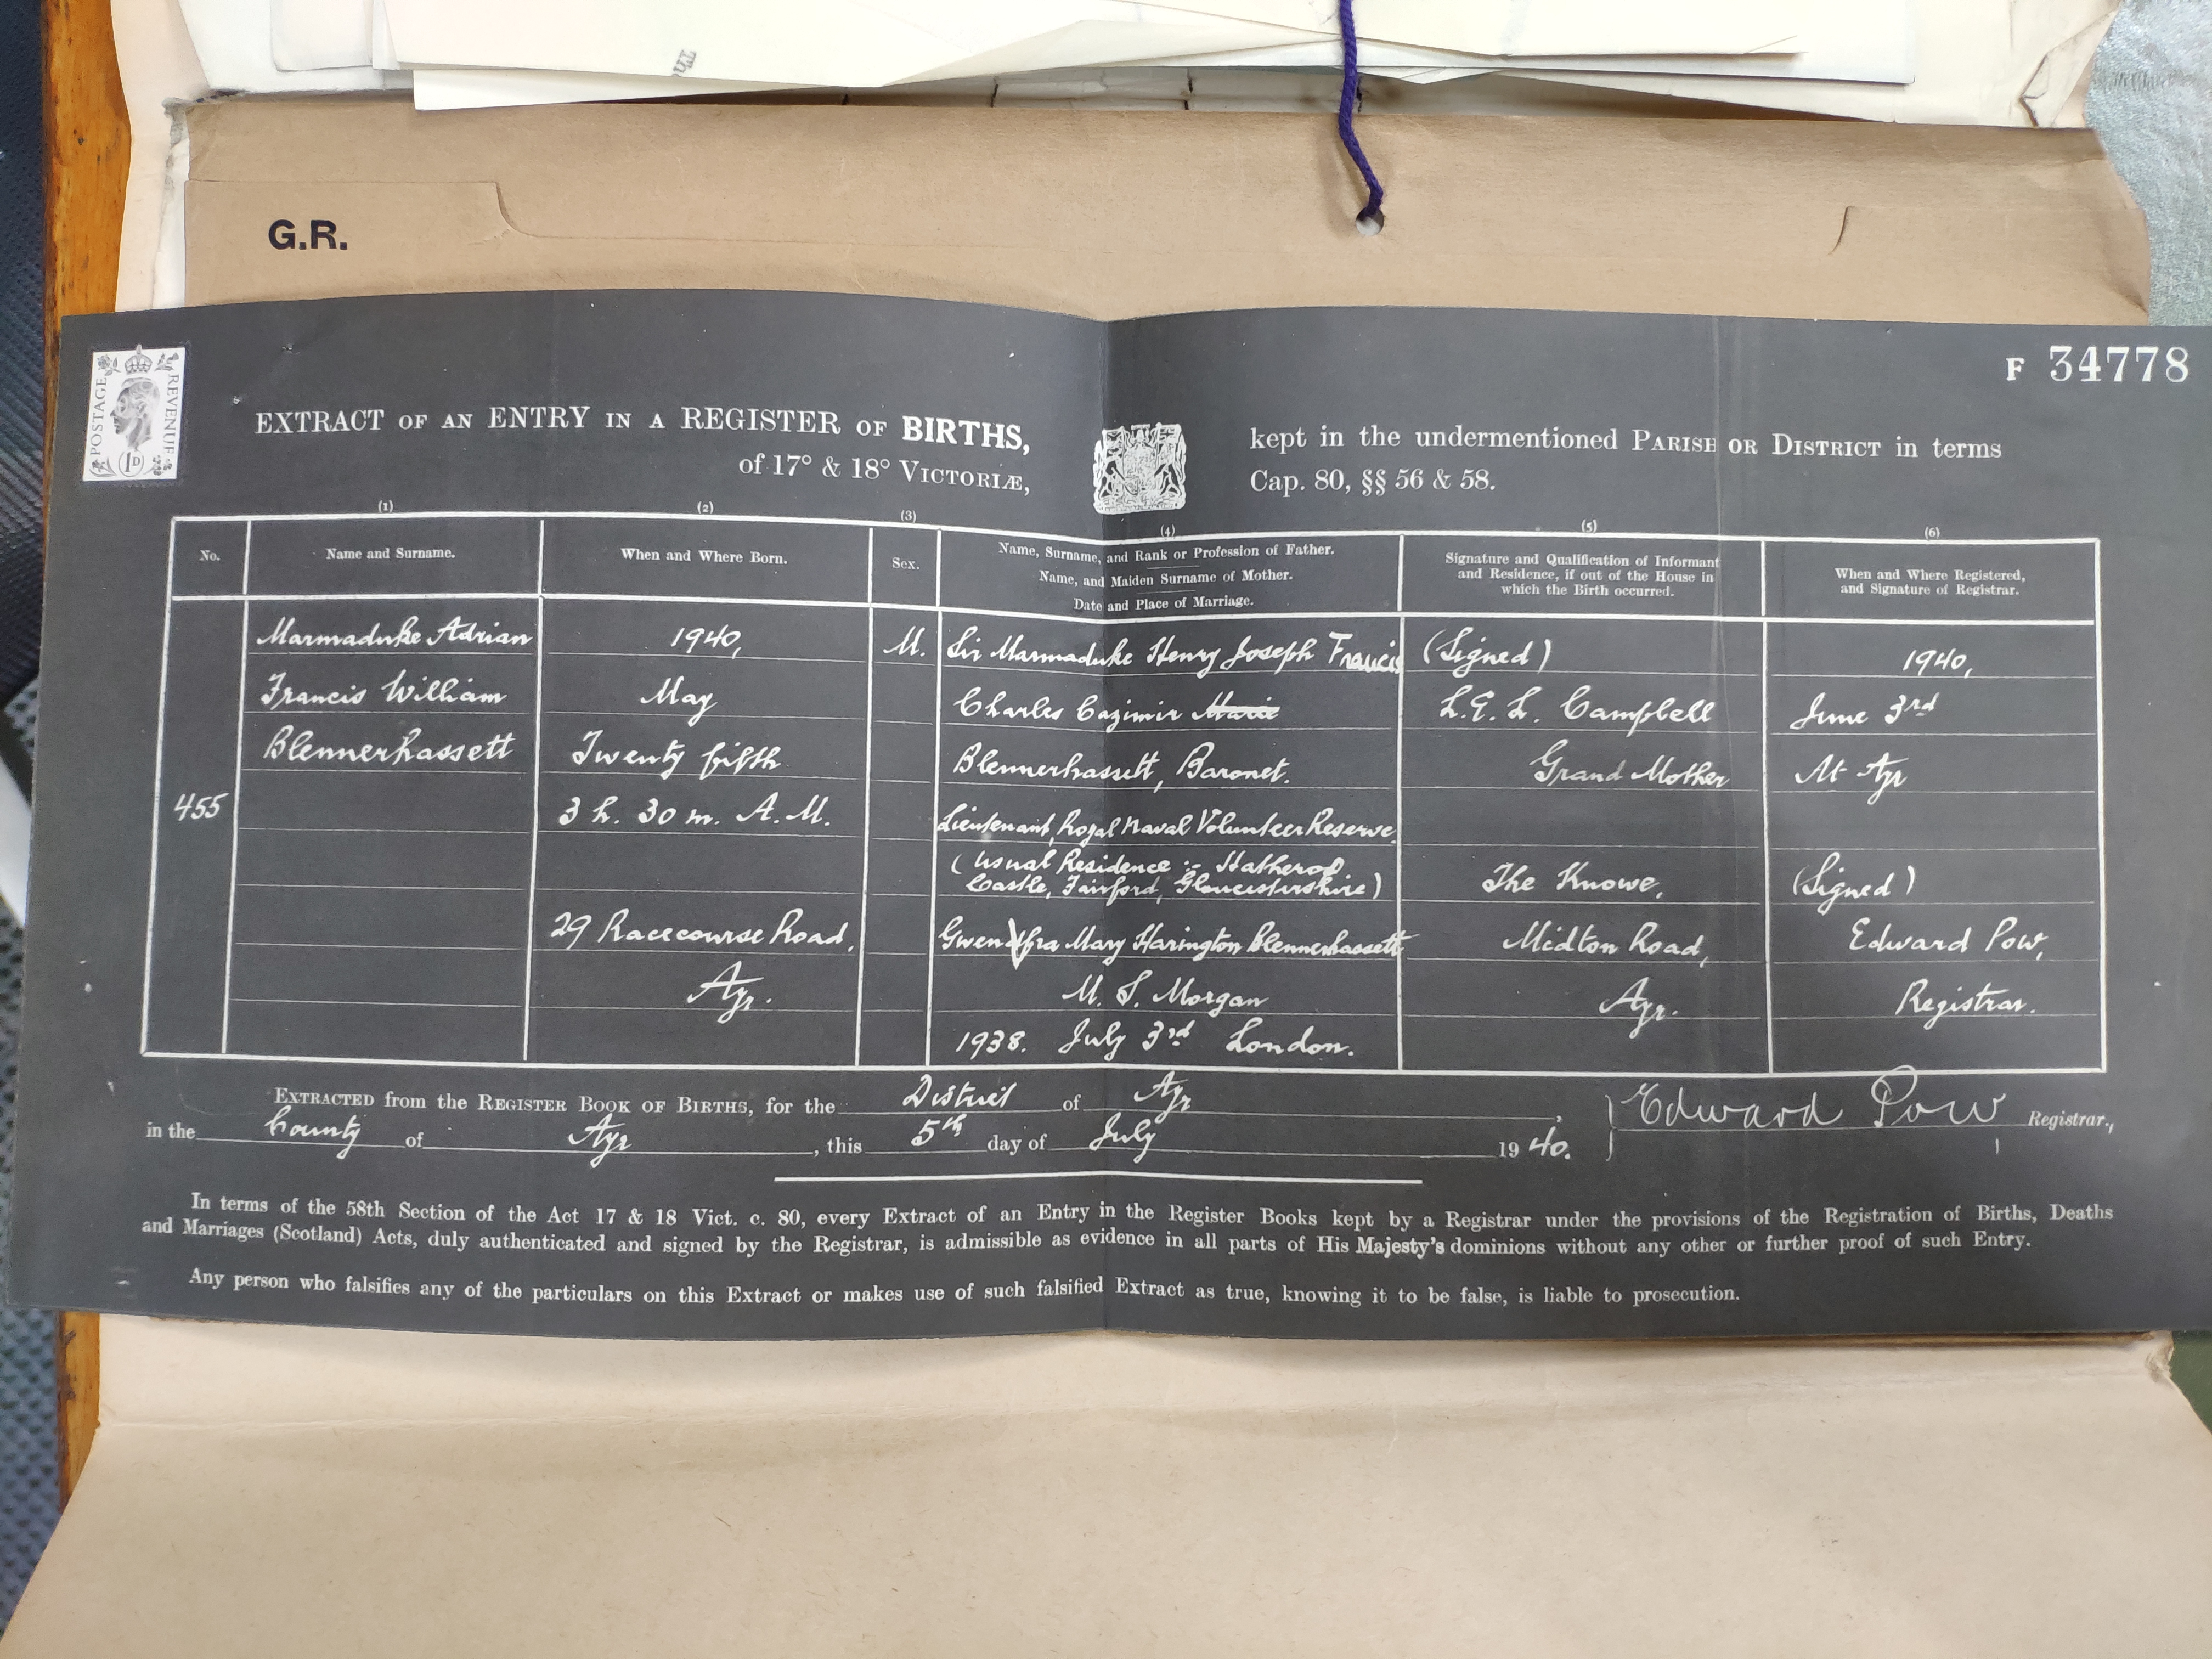 G.R.
POSTAGE REVENUE
1D
F 34778
EXTRACT OF AN ENTRY IN A REGISTER OF BIRTHS, kept in the undermentioned PARISH OR DISTRICT in terms
of 17° & 18° VICTORIÆ, Cap. 80, §§ 56 & 58.
(1) (2) (3) (4) (5) (6)
No.
Name and Surname.
When and Where Born.
Sex.
Name, Surname, and Rank or Profession of Father.
Name, and Maiden Surname of Mother.
Date and Place of Marriage.
Signature and Qualification of Informant
and Residence, if out of the House in
which the Birth occurred.
When and Where Registered,
and Signature of Registrar.
455
Marmaduke Adrian
Francis William
Blennerhassett
1940,
May
Twenty fifth
3 h. 30 m. A.M.
29 Racecourse Road,
Ayr.
M.
Sir Marmaduke Henry Joseph Francis
Charles Cazimir Marie
Blennerhassett, Baronet.
Lieutenant, Royal Naval Volunteer Reserve
(Usual Residence :- Hatherop
Castle, Fairford, Gloucestershire)
Mary Harington Blennerhassett
M. S. Morgan
1938. July 3rd London.
(Signed)
L.E.L. Campbell
Grand Mother
The Knowe,
Midton Road,
Ayr.
1940,
June 3rd
At Ayr
(Signed)
Edward Pow,
Registrar.
EXTRACTED from the REGISTER BOOK OF BIRTHS, for the District of Ayr,
in the County of Ayr, this 5th day of July 1940.
Edward Pow Registrar.,
In terms of the 58th Section of the Act 17 & 18 Vict. c. 80, every Extract of an Entry in the Register Books kept by a Registrar under the provisions of the Registration of Births, Deaths
and Marriages (Scotland) Acts, duly authenticated and signed by the Registrar, is admissible as evidence in all parts of His Majesty's dominions without any other or further proof of such Entry.
Any person who falsifies any of the particulars on this Extract or makes use of such falsified Extract as true, knowing it to be false, is liable to prosecution.